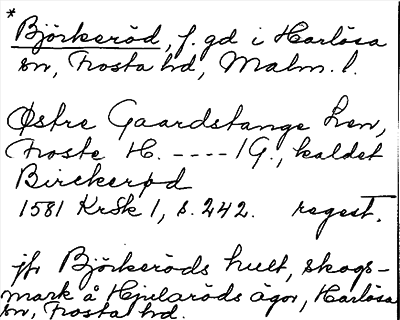 *
Björkeröd, f. gd i Harlösa
sn, Frosta hd, Malm. l.
Østre Gaardstange Len,
Froste H. ---- 1 G., kaldet
Birckerød
1581 KrSk 1, s. 242. regest.
jfr Björkeröds hult, skogs-
mark å Hjularöds ägor, Harlösa
sn, Frosta hd.